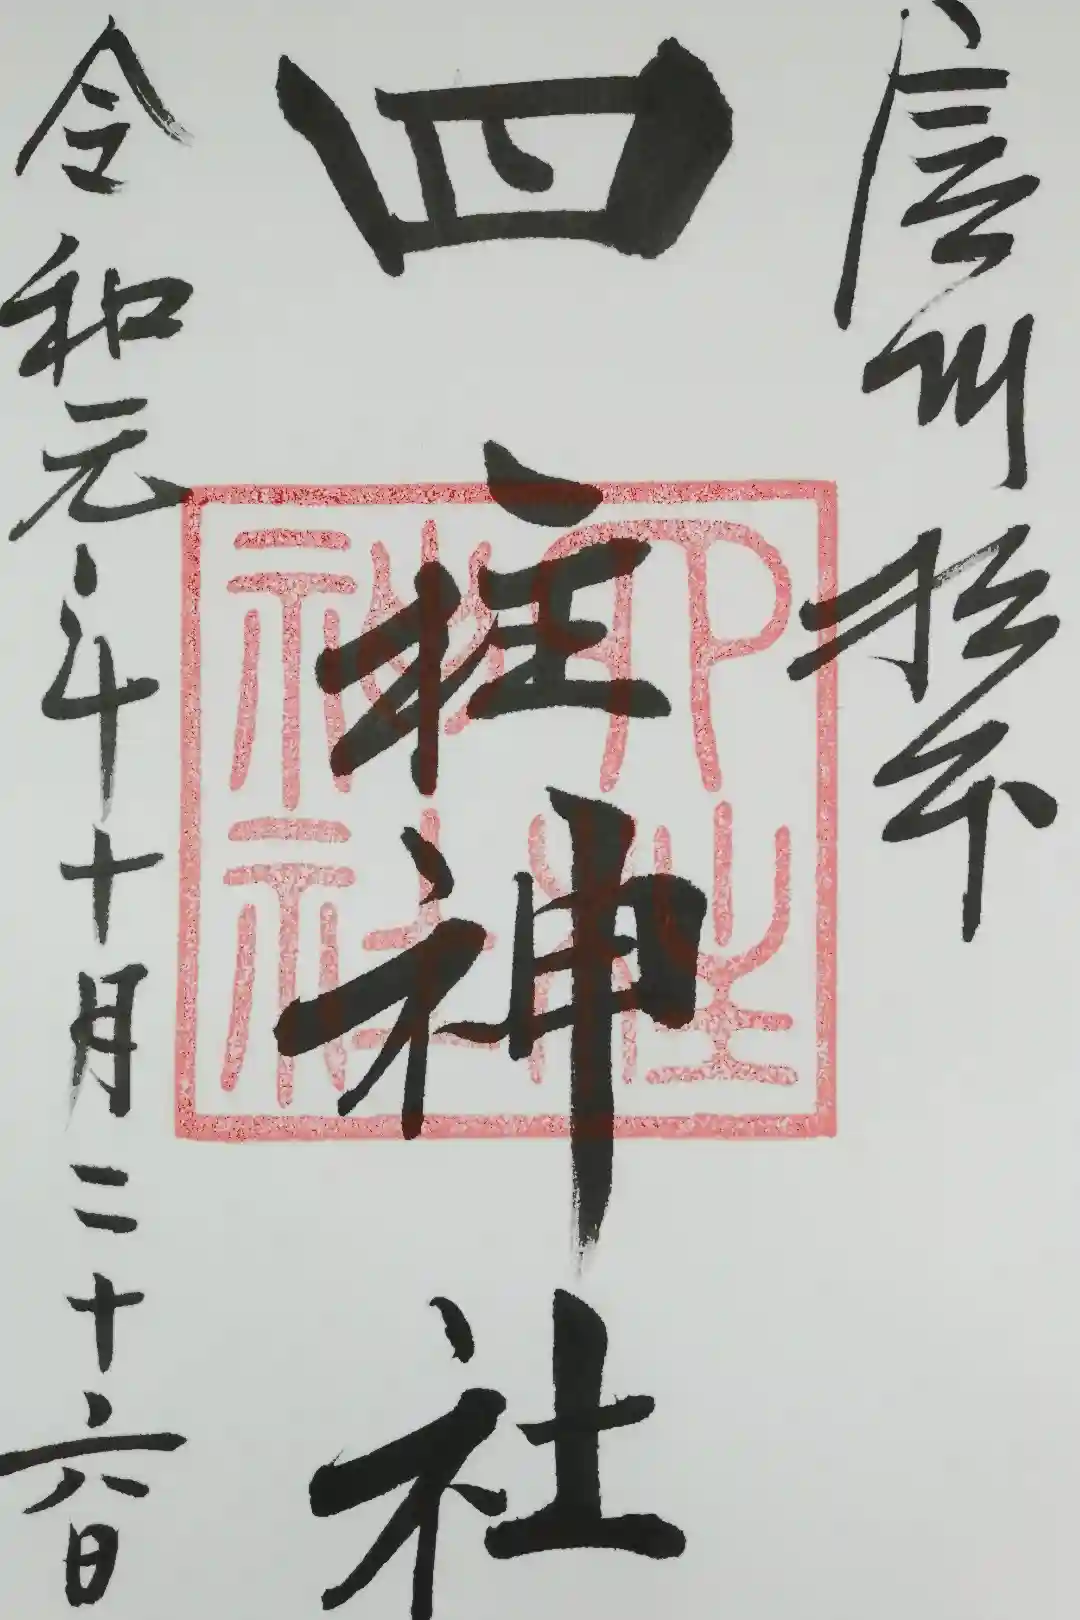 信州 松本
四柱神社
令和元年十月二十六日
四柱神社